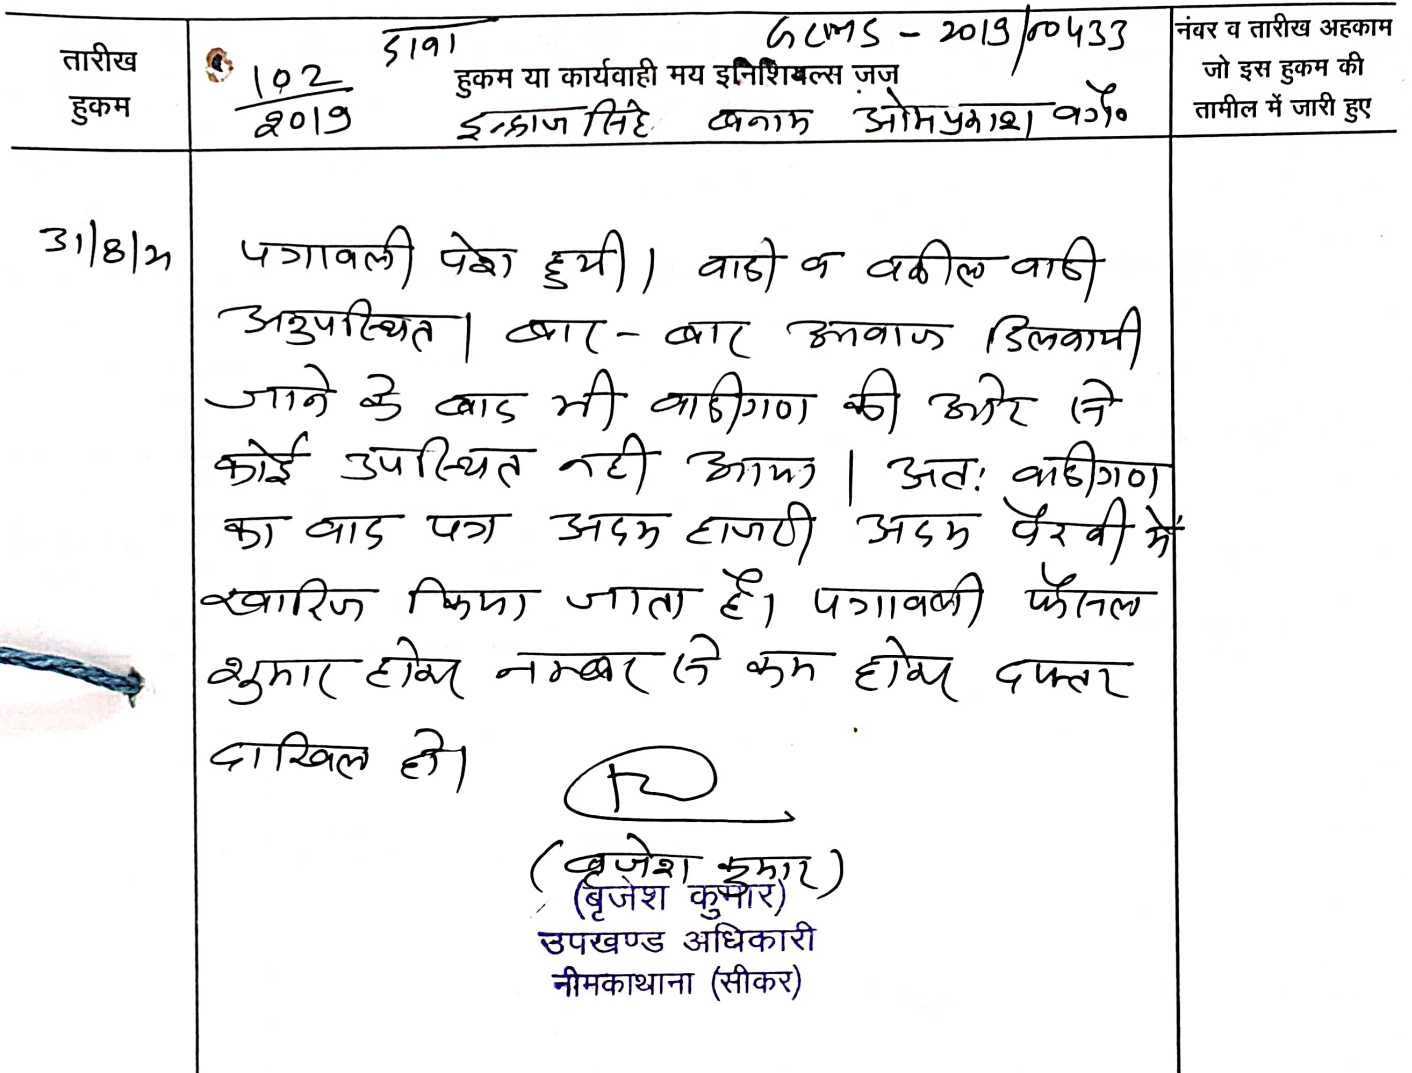 तारीख
हुकम
102
2019
दावा
GCMS - 2019/00433
हुकम या कार्यवाही मय इनिशियल्स ज़ज
इन्द्राज सिंह बनाम ओमप्रकाश वगै०
नंवर व तारीख अहकाम
जो इस हुकम की
तामील में जारी हुए
31/8/21
पत्रावली पेश हुयी। वादी व वकील वादी
अनुपस्थित। बार-बार आवाज दिलवायी
जाने के बाद भी वादीगण की ओर से
कोई उपस्थित नही आया। अतः वादीगण
का वाद पत्र अदम हाजरी अदम पैरवी में
खारिज किया जाता है। पत्रावली फैसल
शुमार होकर नम्बर से कम होकर दफ्तर
दाखिल हो।
(बृजेश कुमार)
(बृजेश कुमार)
उपखण्ड अधिकारी
नीमकाथाना (सीकर)